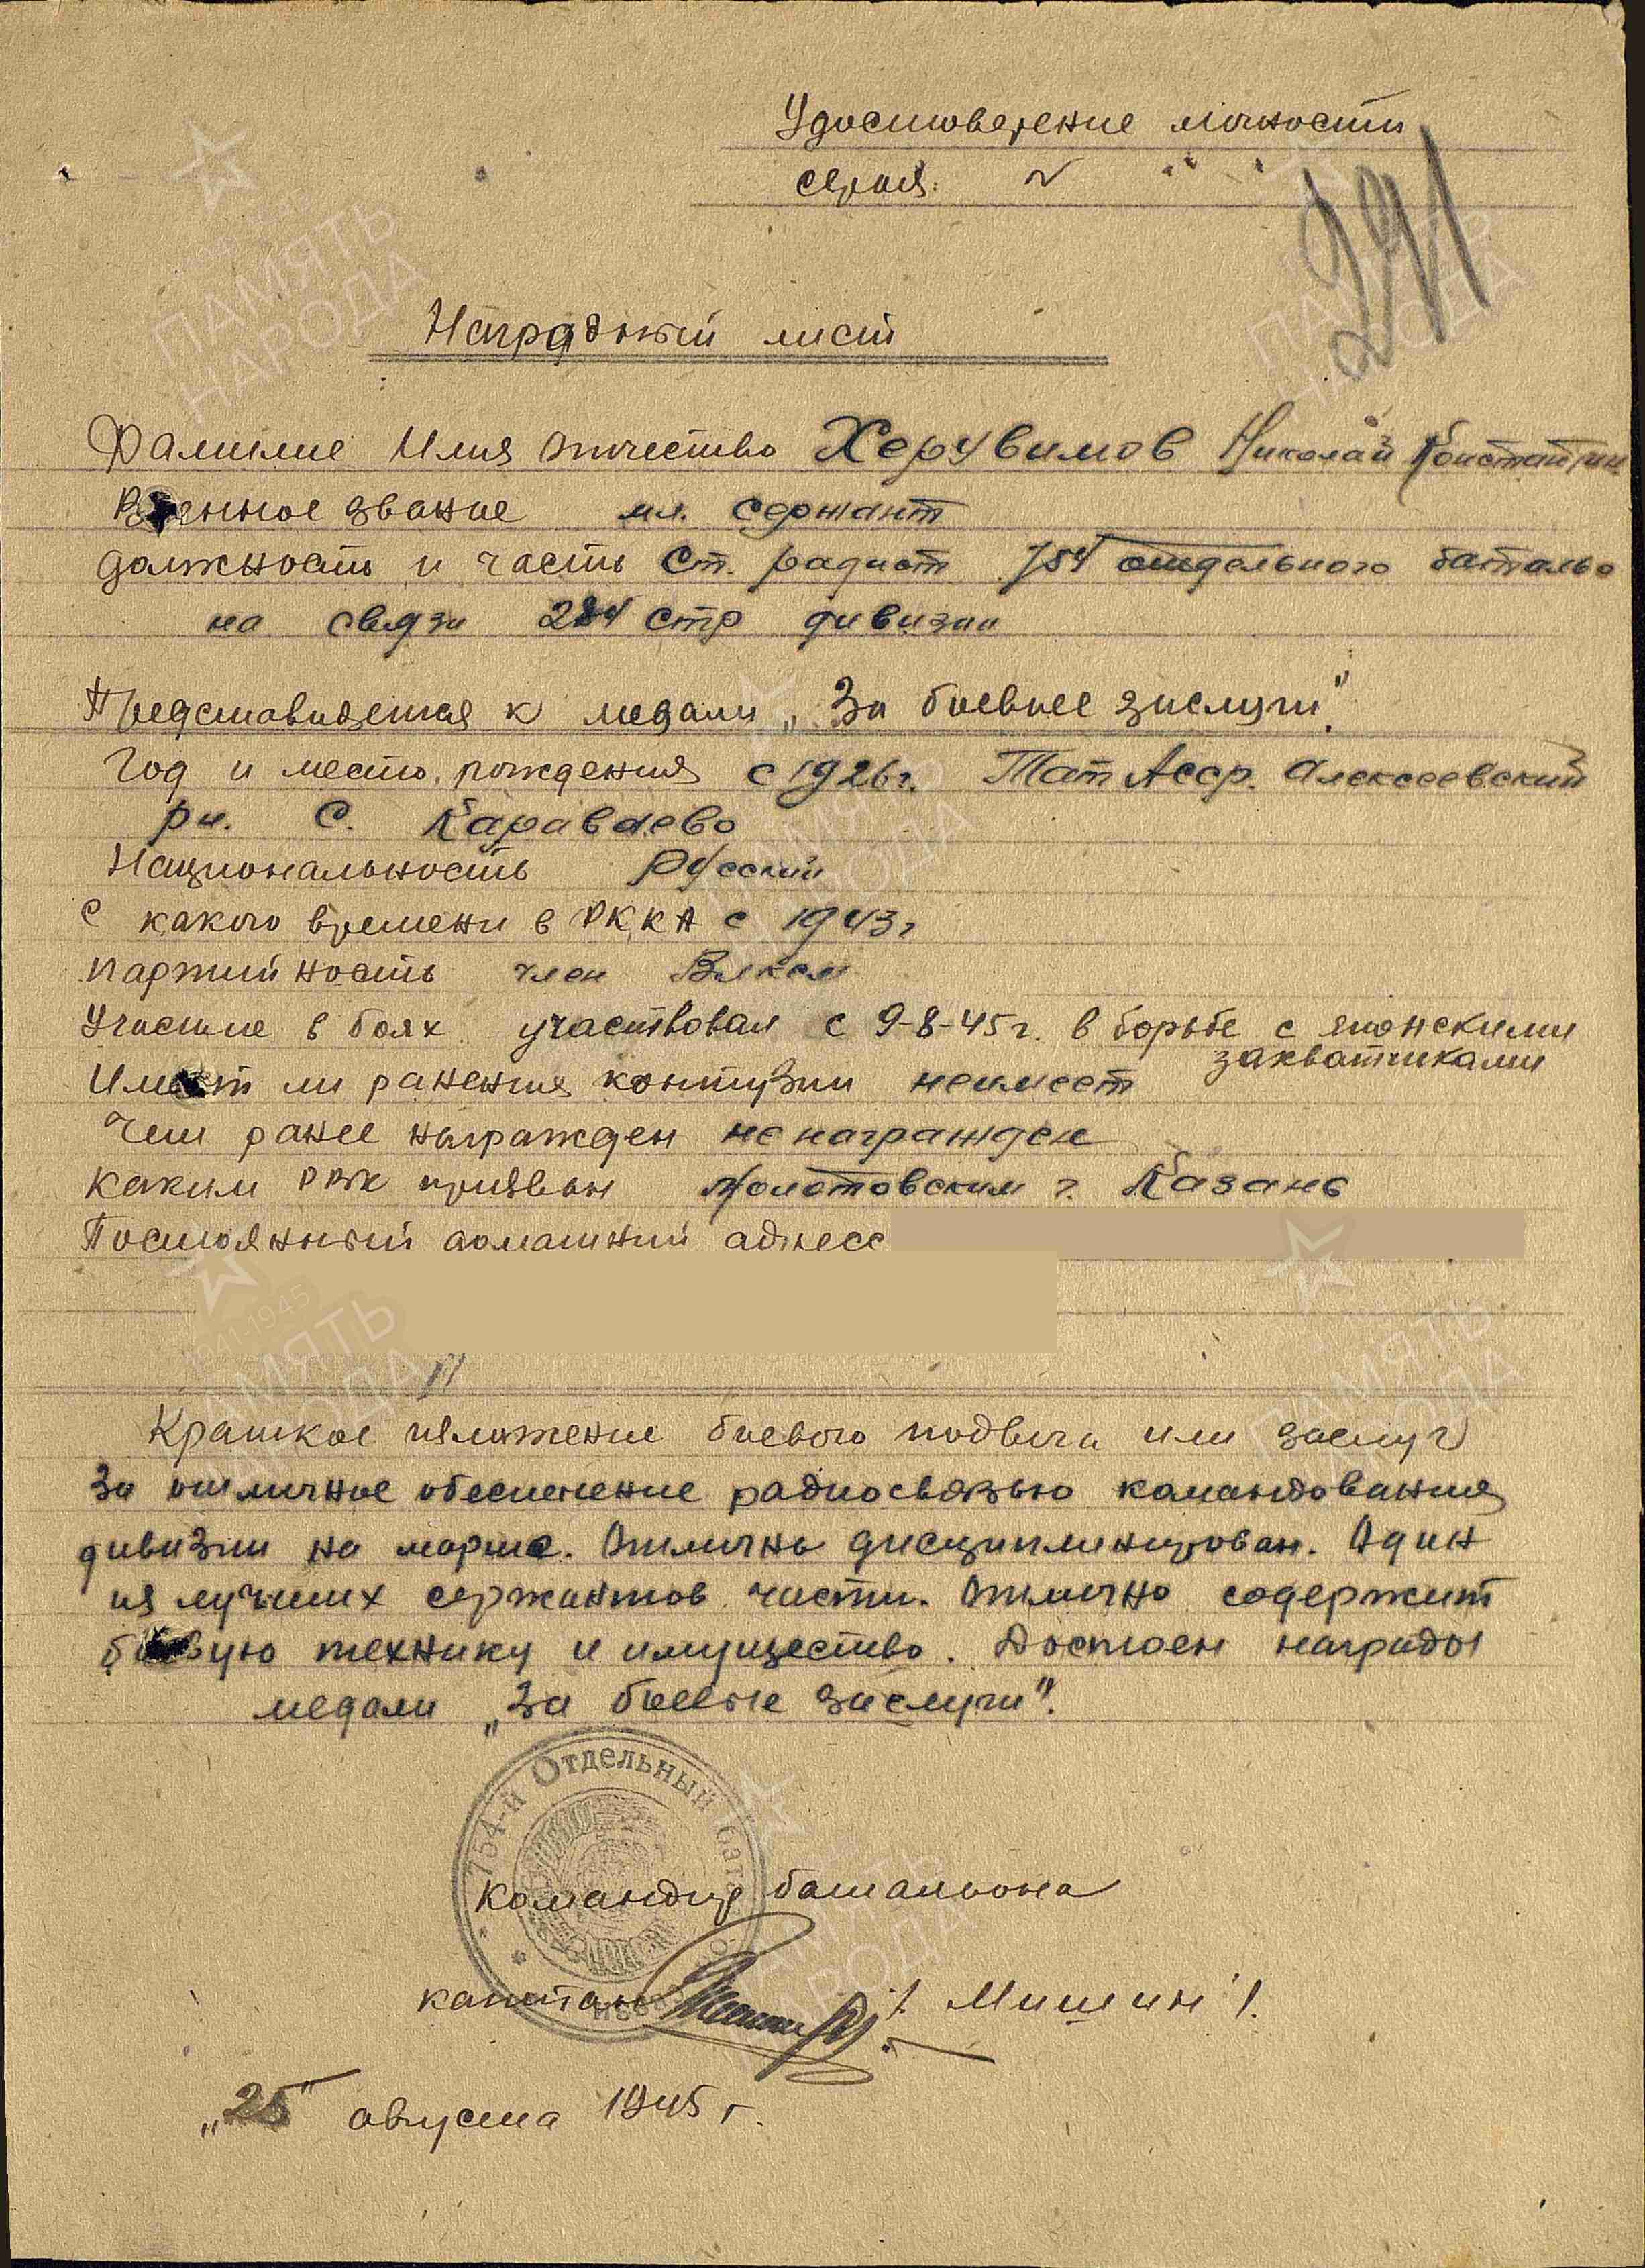 Удостоверение личности
серия № " "
291
Наградный лист
Фамилие Имя отчество Херувимов Николай Константин
Военное звание мл. сержант
должность и часть Ст. радист 754 отдельного батальо
на связи 284 стр дивизии
Представляется к медали „За боевые заслуги"
Год и место рождения с 1926г. Тат Асср. Алексеевский
рн. с. Караваево
Национальность Русский
С какого времени в РККА с 1943г
Партийность член Влксм
Участие в боях участвовал с 9-8-45г. в борьбе с японскими
захватчиками
Имеет ли ранения контузии неимеет
Чем ранее награжден не награжден
каким РВК призван Молотовским г. Казань
Постоянный домашний адресс
Краткое изложение боевого подвига или заслуг
За отличное обеспечение радиосвязью командования
дивизии на марше. Отлично дисциплинирован. Один
из лучших сержантов части. Отлично содержит
боевую технику и имущество. Достоен награды
медали „За боевые заслуги".
754-й Отдельный бат связи
Командир батальона
капитан /Мишин/.
„25" августа 1945 г.
ПАМЯТЬ
НАРОДА
1941-1945